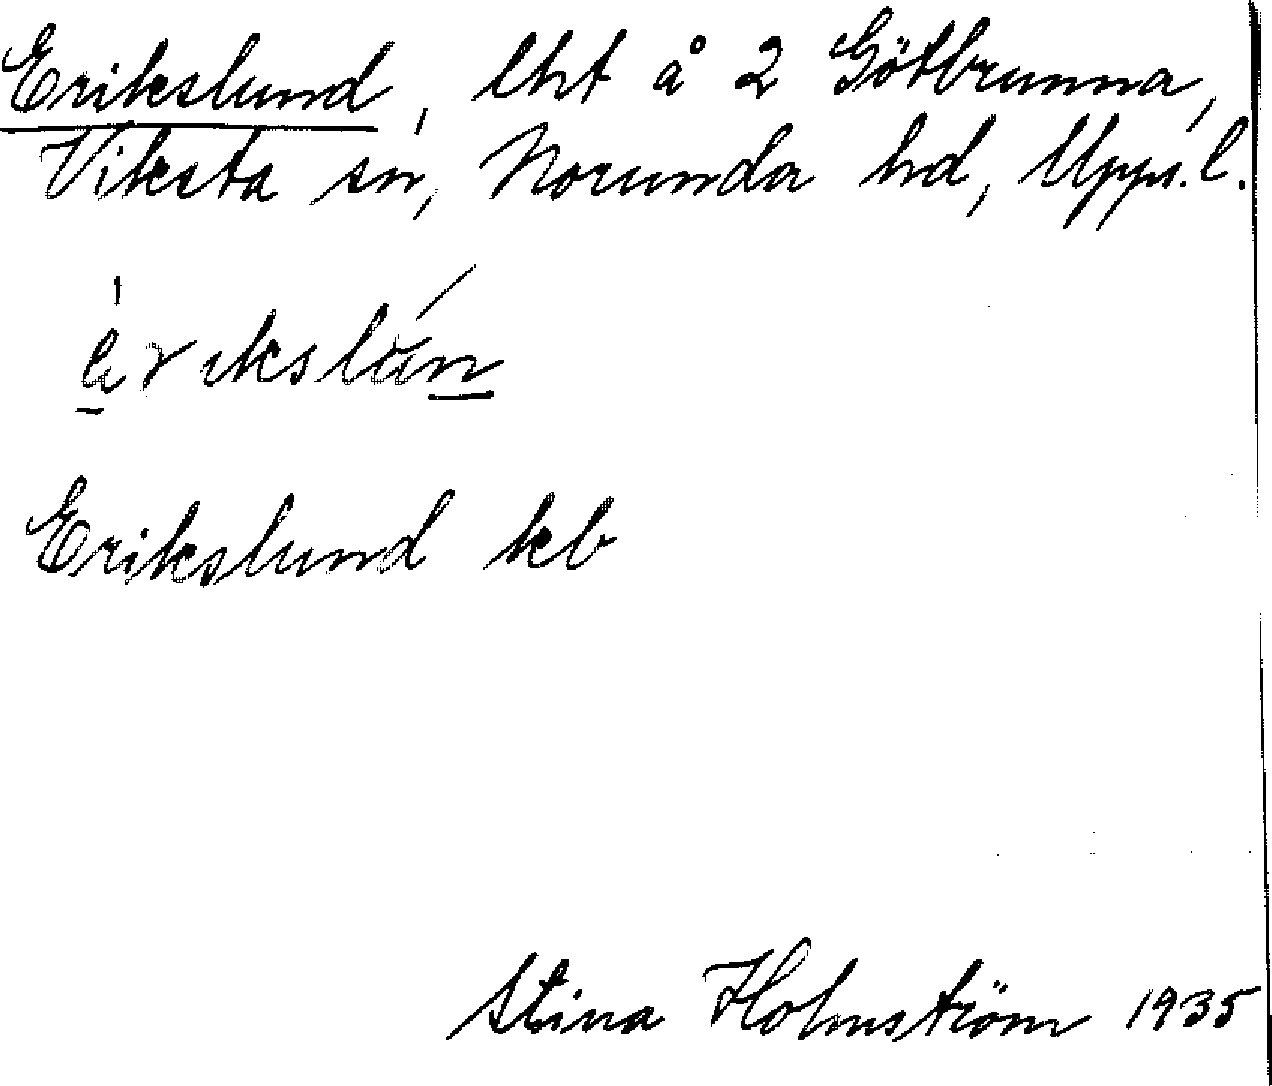 Erikslund, lht å 2 Götbrunna,
Viksta sn, Norunda hd, Upps. l.
Erikslund kb
Stina Holmström 1935